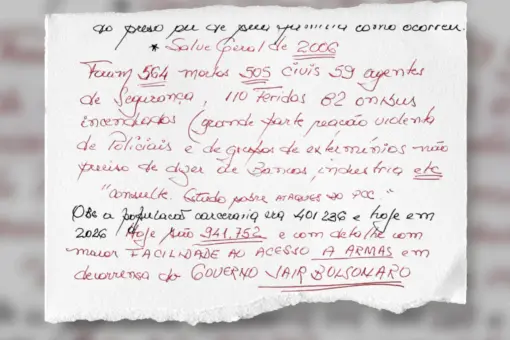 ao preso ou de sua família como ocorreu.
* Salve Geral de 2006
Foram 564 mortos 505 civis 59 agentes
de Segurança, 110 feridos 82 onibus
incendiados (grande parte reação violenta
de Policiais e de grupos de extermínios não
preciso de dizer de Bancos industria etc
"consulte. Estudo sobre ATAQUES DO PCC."
Obs a população carceraria era 401 236 e hoje em
2026 Hoje são 941.752 e com detalhe com
maior FACILIDADE AO ACESSO A ARMAS em
decorrensa do GOVERNO JAIR BOLSONARO